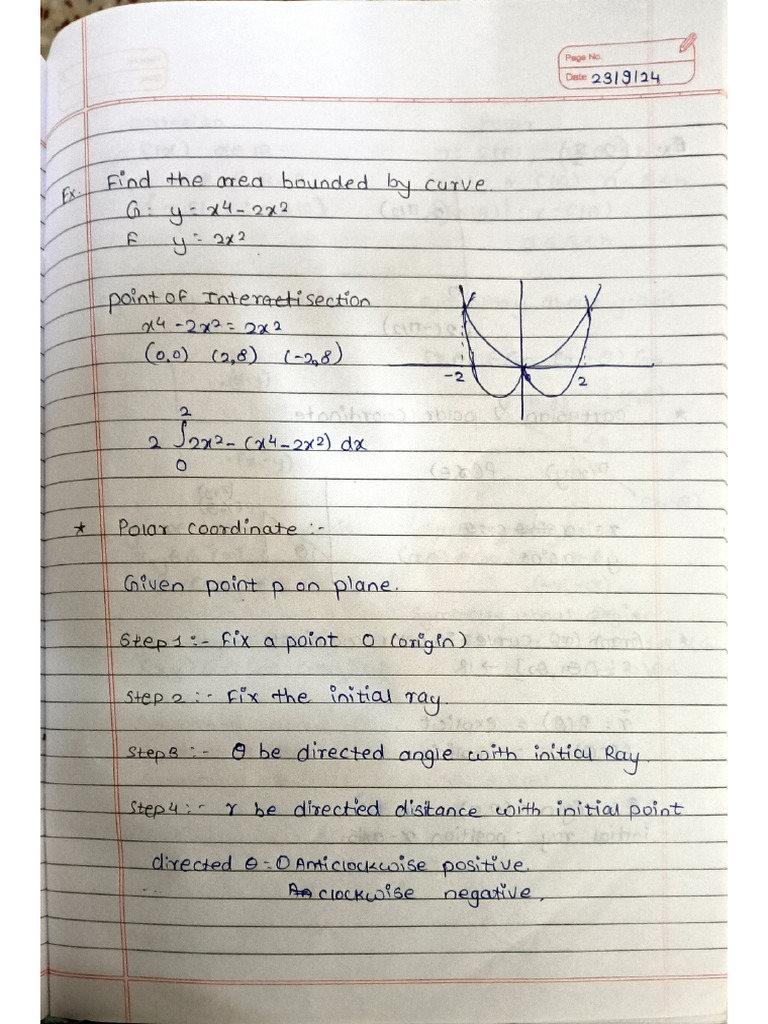 Page No.
Date 23/9/24
Ex. Find the area bounded by curve.
G: y = x4 - 2x2
F y = 2x2
point of Interection
x4 - 2x2 = 2x2
(0,0) (2,8) (-2,8)
-2 2
2
2 ∫ 2x2 - (x4 - 2x2) dx
0
* Polar coordinate :-
Given point p on plane.
Step 1 :- Fix a point O (origin)
Step 2 :- Fix the initial ray.
Step 3 :- θ be directed angle with initial Ray.
Step 4 :- r be directied distance with initial point
directed θ = 0 Anticlockwise positive.
clockwise negative.